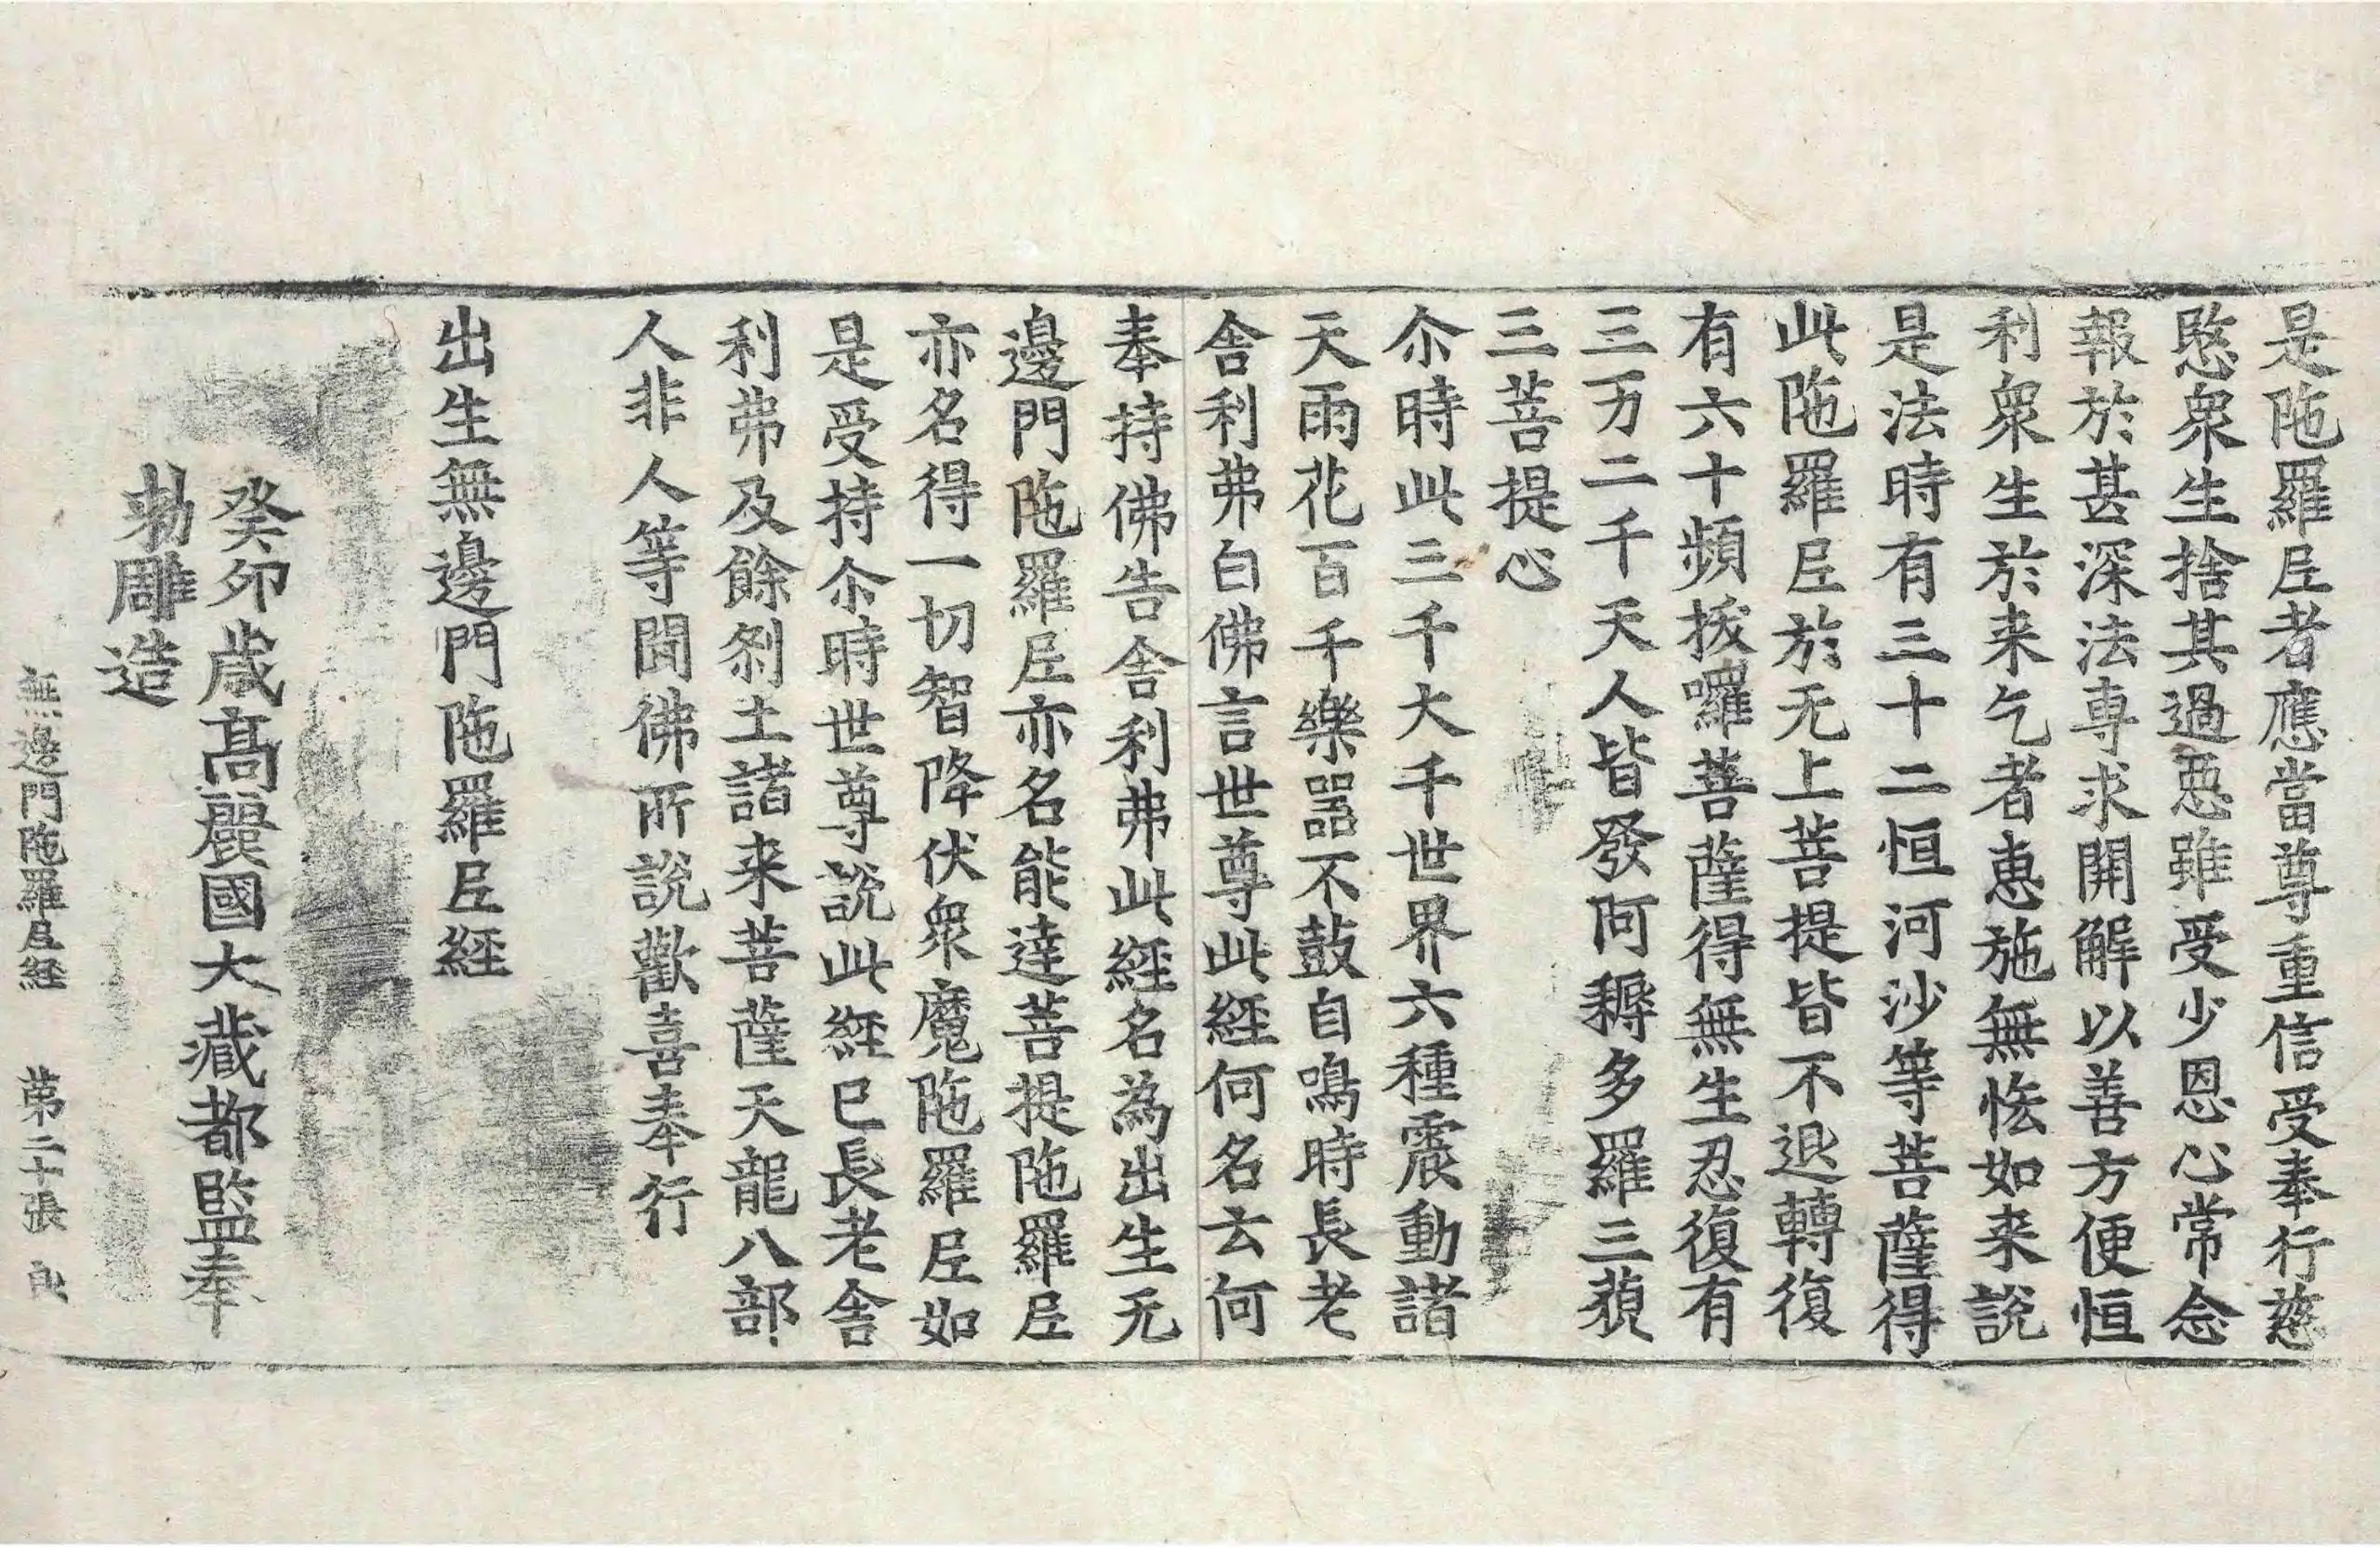 是陁羅𡰱者應當尊重信受奉行慈
愍衆生捨其過惡雖受少恩心常念
報於甚深法専求開解以善方便恒
利衆生於来乞者恵施無恡如来說
是法時有三十二恒河沙等菩薩得
此陁羅𡰱於无上菩提皆不退轉復
有六十頻拔囉菩薩得無生忍復有
三万二千天人皆發阿耨多羅三藐
三菩提心
尒時此三千大千世界六種震動諸
天雨花百千樂器不鼓自鳴時長老
舍利弗白佛言世尊此經何名云何
奉持佛告舍利弗此經名為出生无
邊門陁羅𡰱亦名能達菩提陁羅𡰱
亦名得一切智降伏衆魔陁羅𡰱如
是受持尒時世尊說此經已長老舍
利弗及餘剎土諸来菩薩天龍八部
人非人等聞佛所說歡喜奉行
出生無邊門陁羅𡰱經
癸卯歲高麗國大藏都監奉
勑雕造
無邊門陁羅𡰱經 苐二十張